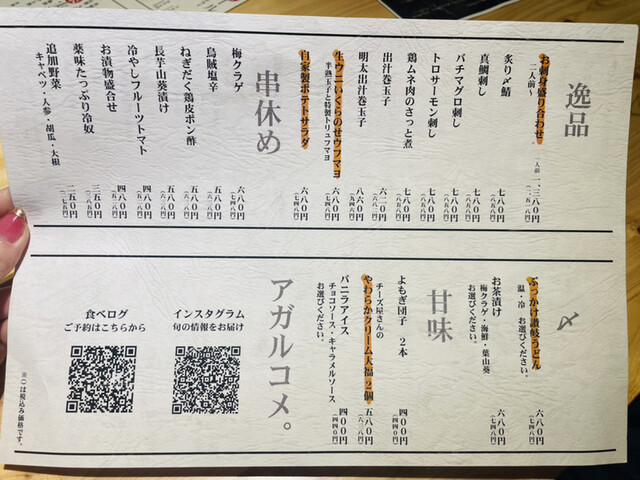 逸品
お刺身盛り合わせ。
二人前〜
一人前 一、三八〇円
(一、五一八円)
炙り〆鯖
七八〇円
(八五八円)
真鯛刺し
七八〇円
(八五八円)
バチマグロ刺し
七八〇円
(八五八円)
トロサーモン刺し
七八〇円
(八五八円)
鶏ムネ肉のさっと煮
七八〇円
(八五八円)
出汁巻玉子
六二〇円
明太出汁巻玉子
八六〇円
(九四六円)
生ウニいくらのせウフマヨ
半熟玉子と特製トリュフマヨ
六八〇円
(七四八円)
自家製ポテトサラダ
六八〇円
(七四八円)
串休め
梅クラゲ
六八〇円
(七四八円)
烏賊塩辛
五八〇円
(六三八円)
ねぎだく鶏皮ポン酢
五八〇円
(六三八円)
長芋山葵漬け
五八〇円
(六三八円)
冷やしフルーツトマト
四八〇円
(五二八円)
お漬物盛合せ
四八〇円
(五二八円)
薬味たっぷり冷奴
三五〇円
(三八五円)
追加野菜
キャベツ・人参・胡瓜・大根
二五〇円
(二七五円)
〆
ぶっかけ讃岐うどん
温・冷 お選びください。
六八〇円
(七四八円)
お茶漬け
梅クラゲ・海鮮・葉山葵
お選びください。
六八〇円
(七四八円)
甘味
よもぎ団子 2本
四〇〇円
(四四〇円)
チーズ屋さんの
やわらかクリーム大福 2個
五八〇円
(六三八円)
バニラアイス
チョコソース・キャラメルソース
お選びください。
四〇〇円
(四四〇円)
アガルコメ。
インスタグラム
旬の情報をお届け
食べログ
ご予約はこちらから
※()は税込み価格です。